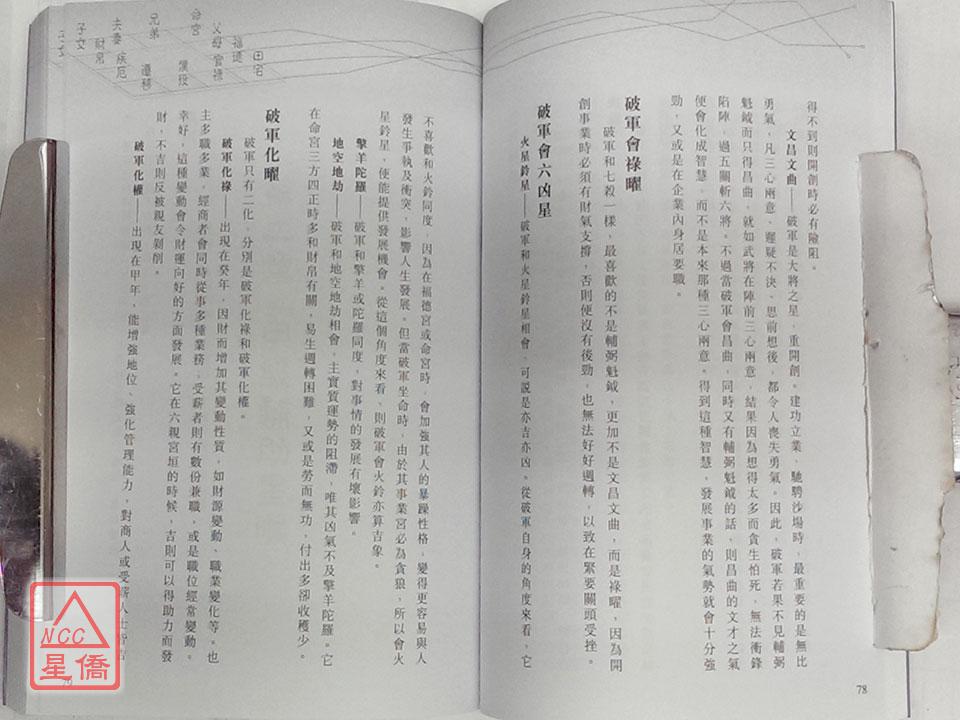 得不到則開創時必有險阻。
文昌文曲——破軍是大將之星，重開創。建功立業、馳騁沙場時，最重要的是無比
勇氣，凡三心兩意、遲疑不決、思前想後，都令人喪失勇氣。因此，破軍若果不見輔弼
魁鉞而只得昌曲，就如武將在陣前三心兩意，結果因為想得太多而貪生怕死，無法衝鋒
陷陣，過五關斬六將。不過當破軍會昌曲，同時又有輔弼魁鉞的話，則昌曲的文才之氣
便會化成智慧，而不是本來那種三心兩意。得到這種智慧，發展事業的氣勢就會十分強
勁，又或是在企業內身居要職。
破軍會祿曜
破軍和七殺一樣，最喜歡的不是輔弼魁鉞，更加不是文昌文曲，而是祿曜，因為開
創事業時必須有財氣支撐，否則便沒有後勁，也無法好好週轉，以致在緊要關頭受挫。
破軍會六凶星
火星鈴星——破軍和火星鈴星相會，可說是亦吉亦凶。從破軍自身的角度來看，它
78
田宅
福德
官祿
父母
命宮
僕役
遷移
兄弟
疾厄
夫妻
財帛
子女
不喜歡和火鈴同度，因為在福德宮或命宮時，會加強其人的暴躁性格，變得更容易與人
發生爭執及衝突，影響人生發展。但當破軍坐命時，由於其事業宮必為貪狼，所以會火
星鈴星，使能提供發展機會。從這個角度來看，則破軍會火鈴亦算吉象。
擎羊陀羅——破軍和擎羊或陀羅同度，對事情的發展有壞影響。
地空地劫——破軍和地空地劫相會，主實質運勢的阻滯，唯其凶氣不及擎羊陀羅。它
在命宮三方四正時多和財帛有關，易生週轉困難，又或是勞而無功，付出多卻收穫少。
破軍化曜
破軍只有二化，分別是破軍化祿和破軍化權。
破軍化祿——出現在癸年，因財而增加其變動性質，如財源變動、職業變化等。也
主多職多業，經商者會同時從事多種業務，受薪者則有數份兼職，或是職位經常變動。
幸好，這種變動會令財運向好的方面發展。它在六親宮垣的時候，吉則可以得助力而發
財，不吉則反被親友剝削。
破軍化權——出現在甲年，能增強地位、強化管理能力，對商人或受薪人士皆吉
79
NCC
星僑